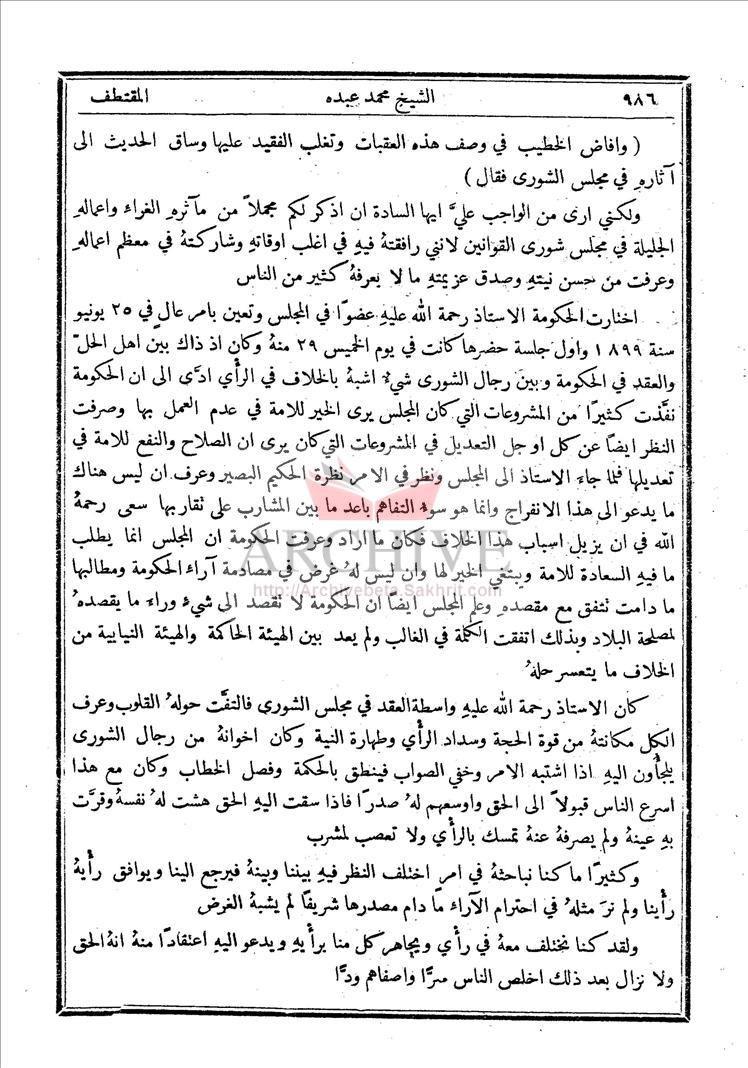 ٩٨٦ الشيخ محمد عبده المقتطف
( وافاض الخطيب في وصف هذه العقبات وتغلب الفقيد عليها وساق الحديث الى
آثارهِ في مجلس الشورى فقال )
ولكني ارى من الواجب عليَّ ايها السادة ان اذكر لكم مجملاً من مآثرهِ الغراء واعمالهِ
الجليلة في مجلس شورى القوانين لانني رافقتهُ فيهِ في اغلب اوقاتهِ وشاركتهُ في معظم اعمالهِ
وعرفت من حسن نيتهِ وصدق عزيمتهِ ما لا يعرفهُ كثير من الناس
اختارت الحكومة الاستاذ رحمة الله عليهِ عضوًا في المجلس وتعين بامر عال في ٢٥ يونيو
سنة ١٨٩٩ واول جلسة حضرها كانت في يوم الخميس ٢٩ منهُ وكان اذ ذاك بين اهل الحلّ
والعقد في الحكومة وبين رجال الشورى شيءٌ اشبهُ بالخلاف في الرأي ادَّى الى ان الحكومة
نفَّذت كثيرًا من المشروعات التي كان المجلس يرى الخير للامة في عدم العمل بها وصرفت
النظر ايضاً عن كل او جل التعديل في المشروعات التي كان يرى ان الصلاح والنفع للامة في
تعديلها فلما جاء الاستاذ الى المجلس ونظر في الامر نظرة الحكيم البصير وعرف ان ليس هناك
ما يدعو الى هذا الانفراج وانما هو سوءُ التفاهم باعد ما بين المشارب على تقاربها سعى رحمهُ
الله في ان يزيل اسباب هذا الخلاف فكان ما اراد وعرفت الحكومة ان المجلس انما يطلب
ما فيهِ السعادة للامة ويبتغي الخير لها وان ليس لهُ غرض في مصادمة آراء الحكومة ومطالبها
ما دامت تتفق مع مقصدهِ وعلم المجلس ايضاً ان الحكومة لا تقصد الى شيءٍ وراء ما يقصدهُ
لمصلحة البلاد وبذلك اتفقت الكلمة في الغالب ولم يعد بين الهيئة الحاكمة والهيئة النيابية من
الخلاف ما يتعسر حلهُ
كان الاستاذ رحمة الله عليهِ واسطة العقد في مجلس الشورى فالتفَّت حولهُ القلوب وعرف
الكل مكانتهُ من قوة الحجة وسداد الرأي وطهارة النية وكان اخوانهُ من رجال الشورى
يلجأون اليهِ اذا اشتبه الامر وخفي الصواب فينطق بالحكمة وفصل الخطاب وكان مع هذا
اسرع الناس قبولاً الى الحق واوسعهم لهُ صدرًا فاذا سقت اليهِ الحق هشت لهُ نفسهُ وقرَّت
بهِ عينهُ ولم يصرفهُ عنهُ تمسك بالرأي ولا تعصب لمشرب
وكثيرًا ما كنا نباحثهُ في امر اختلف النظر فيهِ بيننا وبينهُ فيرجع الينا ويوافق رأيهُ
رأينا ولم نرَ مثلهُ في احترام الآراء ما دام مصدرها شريفاً لم يشبهُ الغرض
ولقد كنا نختلف معهُ في رأي ويجاهر كل منا برأيهِ ويدعو اليهِ اعتقادًا منهُ انهُ الحق
ولا نزال بعد ذلك اخلص الناس سرًّا واصفاهم ودًّا
ARCHIVE
http://Archivebeta.Sakhrit.com